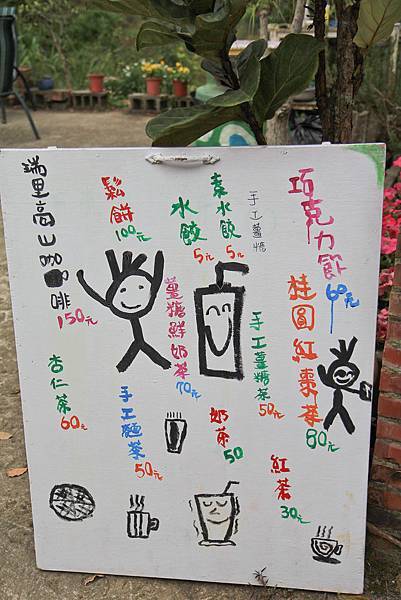 巧克力飲
60元
桂圓紅棗茶
80元
手工薑糖
素水餃
5元
水餃
5元
鬆餅
100元
瑞里高山咖啡
150元
手工薑糖茶
50元
薑糖鮮奶茶
70元
杏仁茶
60元
手工麵茶
50元
奶茶
50
紅茶
30元